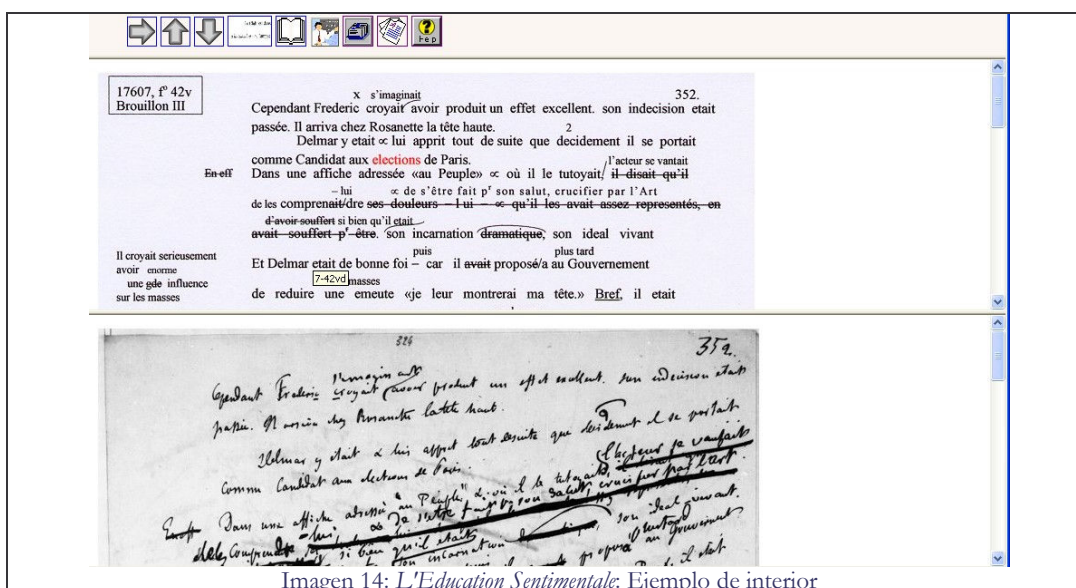 Help
17607, f° 42v
Brouillon III
x s'imaginait 352.
Cependant Frederic croyait avoir produit un effet excellent. son indecision etait
passée. Il arriva chez Rosanette la tête haute.
2
Delmar y etait ∝ lui apprit tout de suite que decidement il se portait
comme Candidat aux elections de Paris.
l'acteur se vantait
En eff Dans une affiche adressée «au Peuple» ∝ où il le tutoyait, il disait qu'il
– lui ∝ de s'être fait pr son salut, crucifier par l'Art
de les comprenait/dre ses douleurs – lui – ∝ qu'il les avait assez representés, en
d'avoir souffert si bien qu'il etait
avait souffert pr être. son incarnation dramatique, son ideal vivant
puis plus tard
Et Delmar etait de bonne foi – car il avait proposé/a au Gouvernement
Il croyait serieusement
avoir enorme
une gde influence
sur les masses
7-42vd masses
de reduire une emeute «je leur montrerai ma tête.» Bref, il etait
324
352.
s'imaginait
Cependant Frederic croyait avoir produit un effet excellent. son indecision etait
passée. Il arriva chez Rosanette la tête haute.
Delmar y etait ∝ lui apprit tout de suite que decidement il se portait
comme Candidat aux elections de Paris.
l'acteur se vantait
En eff Dans une affiche adressée "au Peuple" ∝ où il le tutoyait,
∝ de s'être fait pr son salut, crucifier par l'Art.
de les comprendre
si bien qu'il etait
son incarnation son ideal vivant.
plus tard
proposé au Gouvernement
il etait
Imagen 14: L'Education Sentimentale: Ejemplo de interior